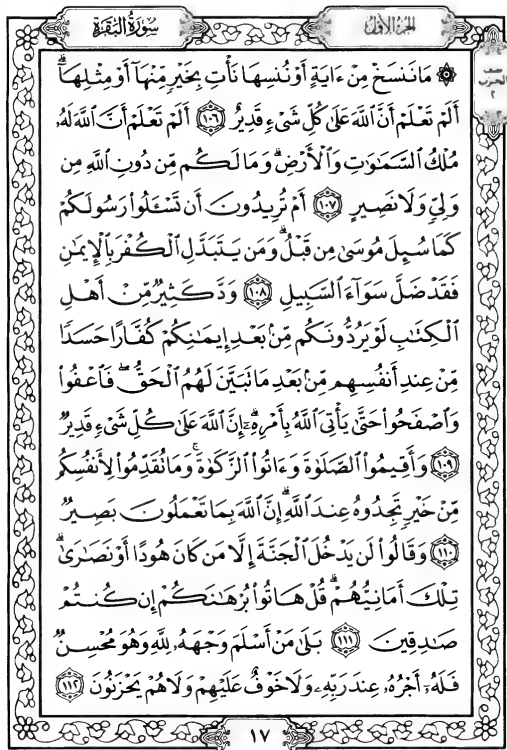 سُورَةُ البَقَرَةِ الجُزءُ الأَوَّلُ
۞ مَا نَنسَخْ مِنْ ءَايَةٍ أَوْ نُنسِهَا نَأْتِ بِخَيْرٍ مِّنْهَآ أَوْ مِثْلِهَآۗ
أَلَمْ تَعْلَمْ أَنَّ ٱللَّهَ عَلَىٰ كُلِّ شَىْءٍ قَدِيرٌ ١٠٦ أَلَمْ تَعْلَمْ أَنَّ ٱللَّهَ لَهُۥ
مُلْكُ ٱلسَّمَٰوَٰتِ وَٱلْأَرْضِۗ وَمَا لَكُم مِّن دُونِ ٱللَّهِ مِن
وَلِىٍّ وَلَا نَصِيرٍ ١٠٧ أَمْ تُرِيدُونَ أَن تَسْـَٔلُوا۟ رَسُولَكُمْ
كَمَا سُئِلَ مُوسَىٰ مِن قَبْلُۗ وَمَن يَتَبَدَّلِ ٱلْكُفْرَ بِٱلْإِيمَٰنِ
فَقَدْ ضَلَّ سَوَآءَ ٱلسَّبِيلِ ١٠٨ وَدَّ كَثِيرٌ مِّنْ أَهْلِ
ٱلْكِتَٰبِ لَوْ يَرُدُّونَكُم مِّنۢ بَعْدِ إِيمَٰنِكُمْ كُفَّارًا حَسَدًا
مِّنْ عِندِ أَنفُسِهِم مِّنۢ بَعْدِ مَا تَبَيَّنَ لَهُمُ ٱلْحَقُّۖ فَٱعْفُوا۟
وَٱصْفَحُوا۟ حَتَّىٰ يَأْتِىَ ٱللَّهُ بِأَمْرِهِۦٓۗ إِنَّ ٱللَّهَ عَلَىٰ كُلِّ شَىْءٍ قَدِيرٌ
١٠٩ وَأَقِيمُوا۟ ٱلصَّلَوٰةَ وَءَاتُوا۟ ٱلزَّكَوٰةَۚ وَمَا تُقَدِّمُوا۟ لِأَنفُسِكُم
مِّنْ خَيْرٍ تَجِدُوهُ عِندَ ٱللَّهِۗ إِنَّ ٱللَّهَ بِمَا تَعْمَلُونَ بَصِيرٌ
١١٠ وَقَالُوا۟ لَن يَدْخُلَ ٱلْجَنَّةَ إِلَّا مَن كَانَ هُودًا أَوْ نَصَٰرَىٰۗ
تِلْكَ أَمَانِيُّهُمْۗ قُلْ هَاتُوا۟ بُرْهَٰنَكُمْ إِن كُنتُمْ
صَٰدِقِينَ ١١١ بَلَىٰ مَنْ أَسْلَمَ وَجْهَهُۥ لِلَّهِ وَهُوَ مُحْسِنٌ
فَلَهُۥٓ أَجْرُهُۥ عِندَ رَبِّهِۦ وَلَا خَوْفٌ عَلَيْهِمْ وَلَا هُمْ يَحْزَنُونَ ١١٢
نصف
الحزب
٢
١٧